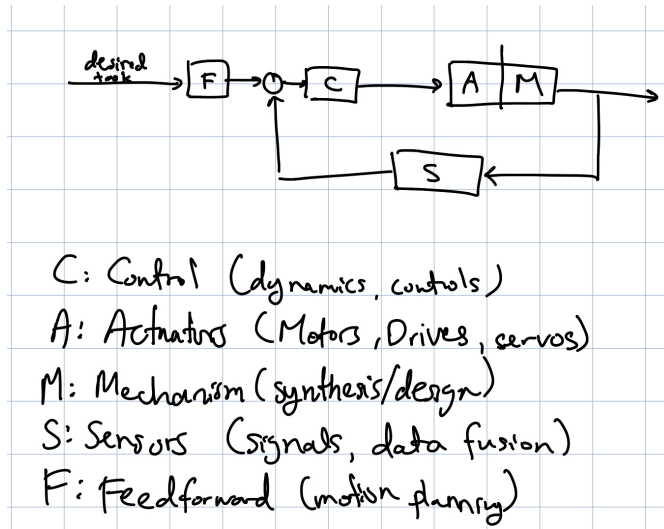 desired
task
F
C
A M
S
C: Control (dynamics, controls)
A: Actuators (Motors, Drives, servos)
M: Mechanism (synthesis/design)
S: Sensors (signals, data fusion)
F: Feedforward (motion planning)